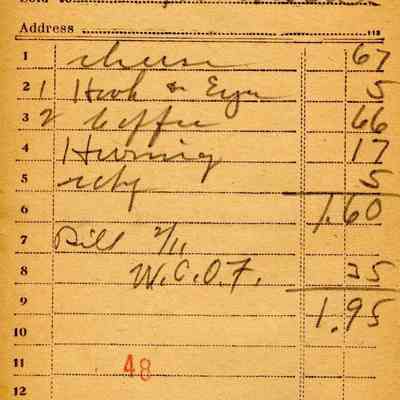 Sold to
Address
1 cheese 67
2 1 Hook & Eyes 5
3 2 Coffee 66
4 17
5 5
6 1.60
7 Bill 2/11
8 W.C.O.F. 35
9 1.95
10
11 48
12